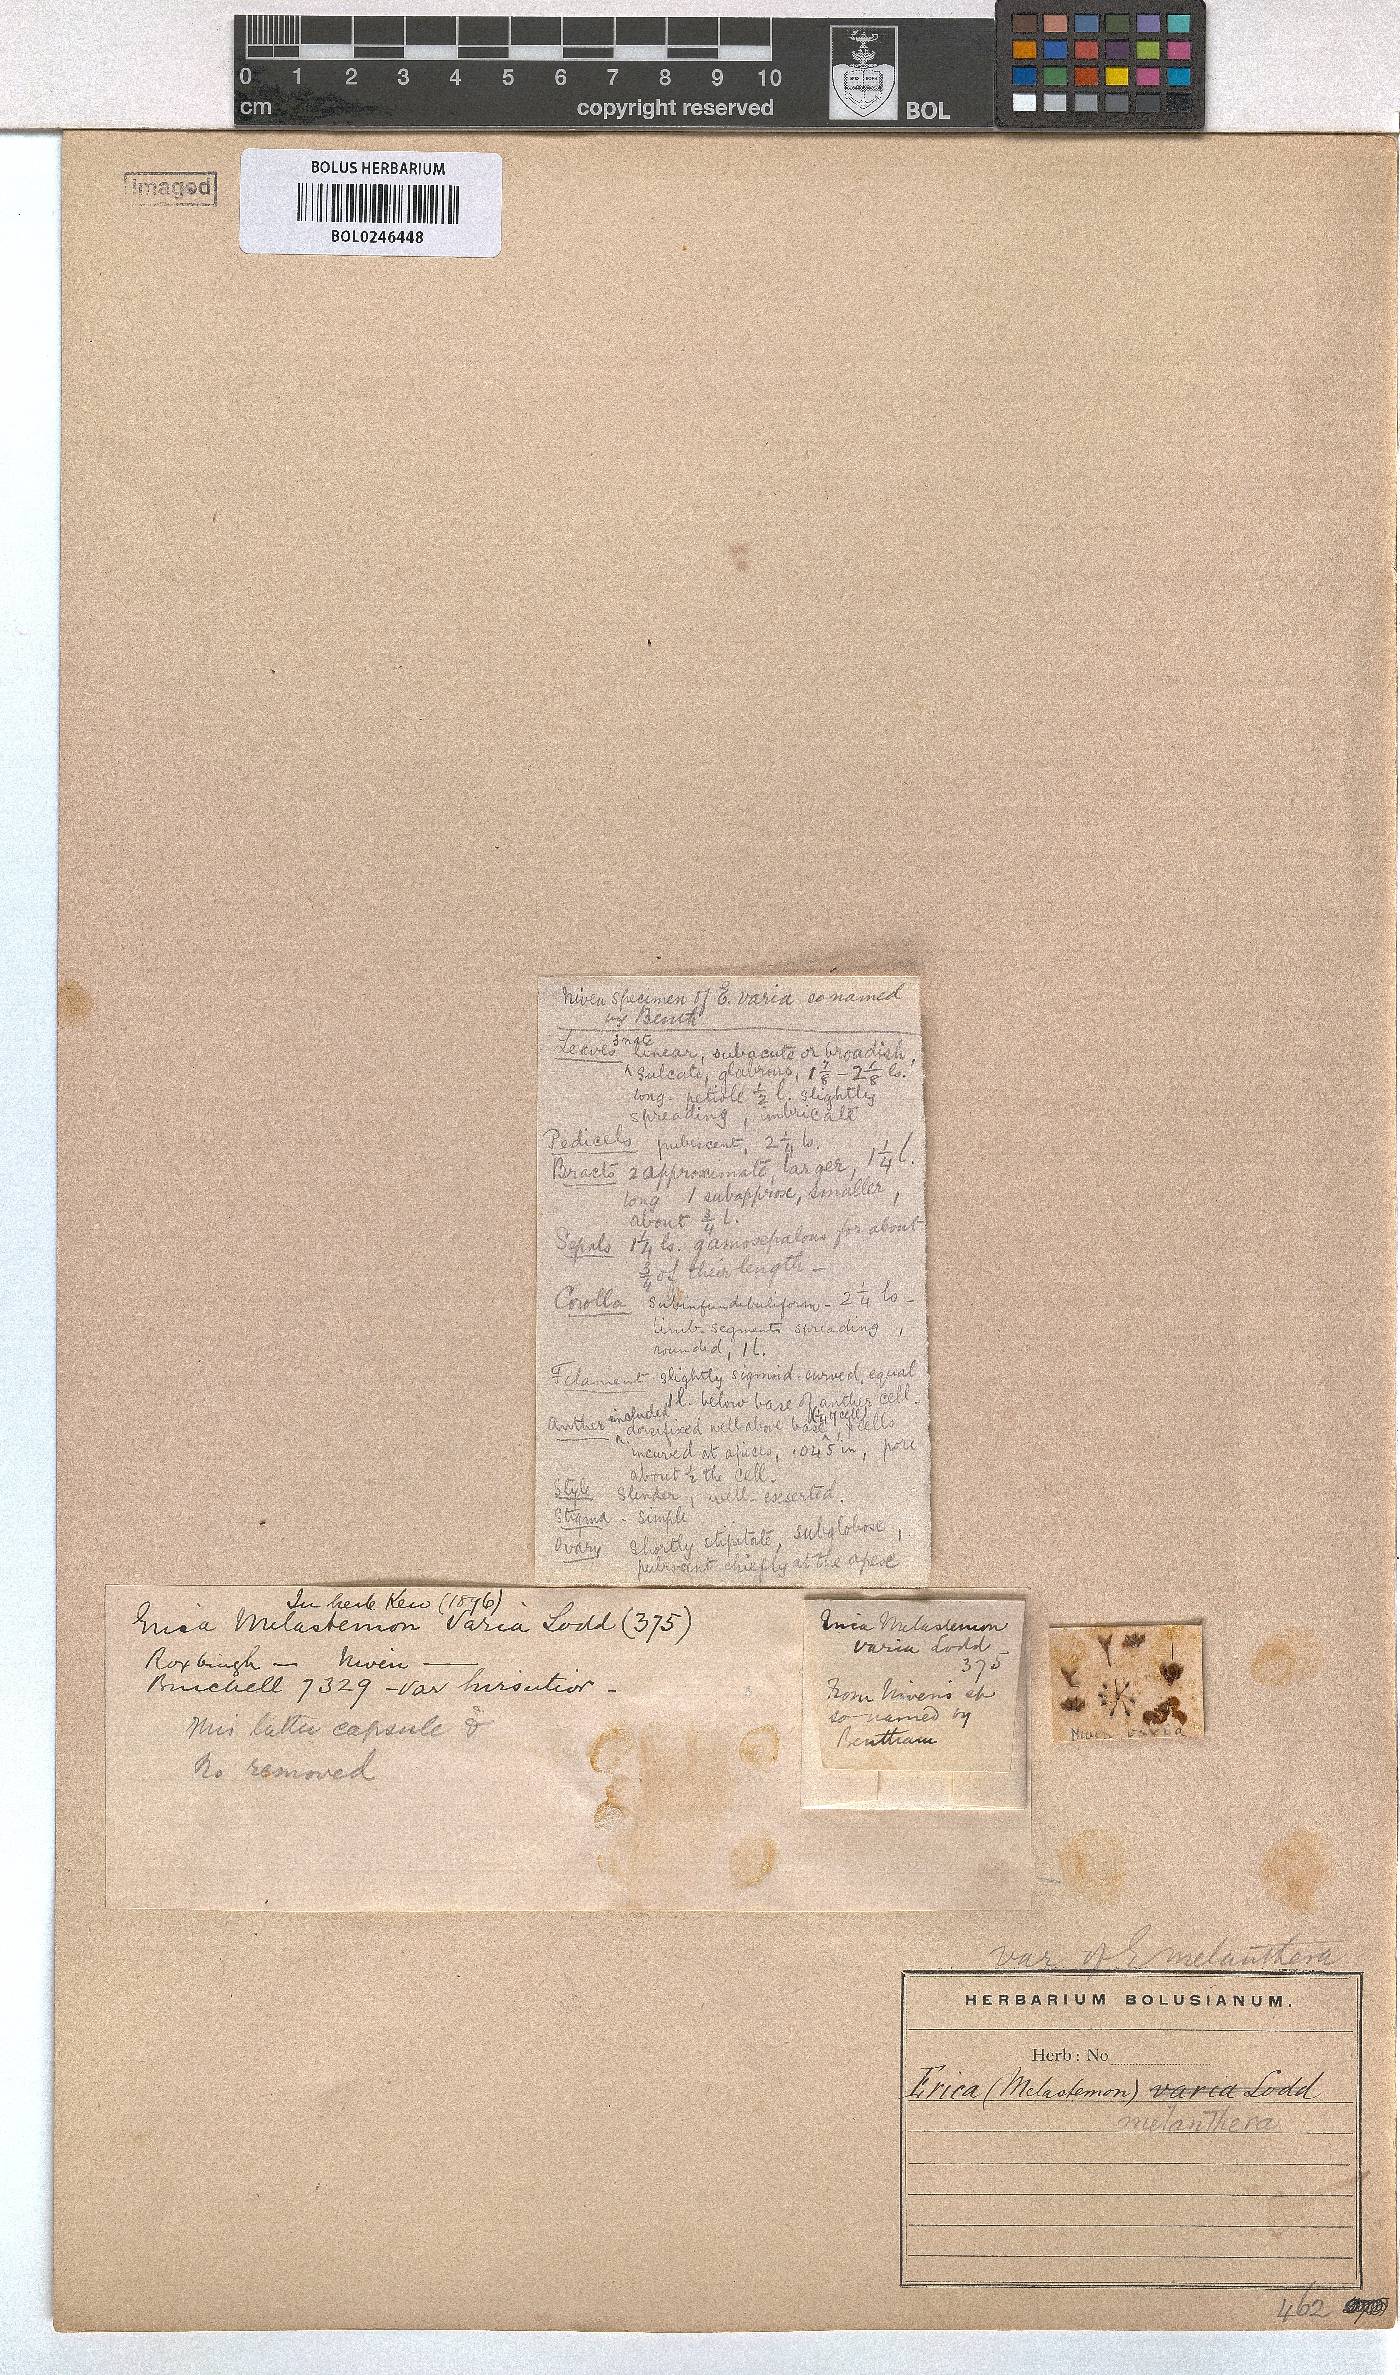 0 1 2 3 4 5 6 7 8 9 10
cm copyright reserved BOL
imaged
BOLUS HERBARIUM
BOL0246448
Niven specimen of E. varia so named
by Benth
Leaves 3nate linear, subacute or broadish,
sulcate, glabrous, 1 7/8 – 2 6/8 ls.
long. petiole 1/2 l. slightly
spreading, imbricate
Pedicels pubescent, 2 1/4 ls.
Bracts 2 approximate, larger, 1 1/4 l.
long 1 subapprox, smaller,
about 3/4 l.
Sepals 1 1/4 ls. gamosepalous for about
3/4 of their length –
Corolla subinfundibuliform – 2 1/4 ls –
limb-segments spreading,
rounded, 1 l.
Filament slightly sigmoid-curved, equal
1 l. below base of anther cell.
Anther included dorsifixed well above base of cell, cells
incurved at apices, .045 in, pore
about 1/2 the cell.
Style slender, well-exserted.
Stigma - simple
Ovary shortly stipitate, subglobose,
pubescent chiefly at the apex
In herb Kew (1896)
Erica Melastemon Varia Lodd (375)
Roxburgh — Niven —
Burchell 7329 – var hirsutior –
This latter capsule &
No removed
Erica Melastemon
varia Lodd
375
From Niven's sp
so-named by
Bentham
Niven varia
var. of E melanthera
HERBARIUM BOLUSIANUM.
Herb: No
Erica (Melastemon) varia Lodd
melanthera
462